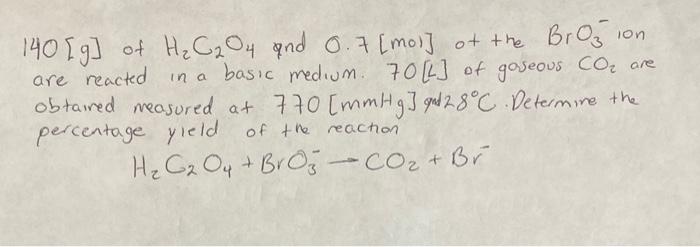 140 [g] of H₂C₂O₄ and 0.7 [mol] of the BrO₃⁻ ion
are reacted in a basic medium. 70 [L] of gaseous CO₂ are
obtained measured at 770 [mmHg] and 28°C. Determine the
percentage yield of the reaction
H₂C₂O₄ + BrO₃⁻ → CO₂ + Br⁻